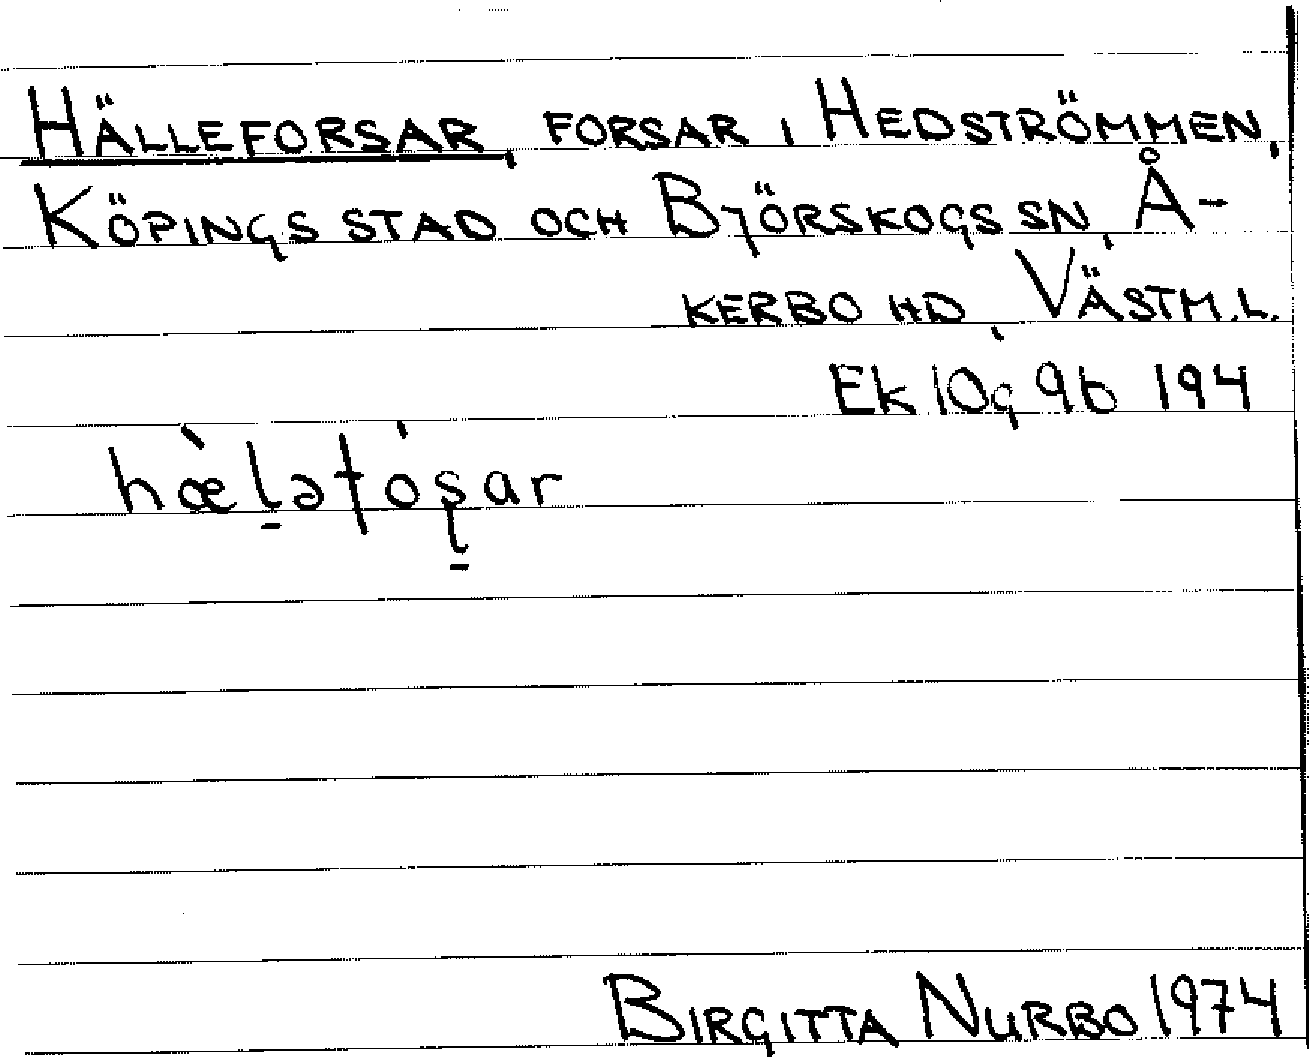 HÄLLEFORSAR, FORSAR I HEDSTRÖMMEN,
KÖPINGS STAD OCH BJÖRSKOGS SN, Å-
KERBO HD, VÄSTM.L.
Ek 10g 9b 194
hæ̀l̠əfó̠ʂar
BIRGITTA NURBO 1974